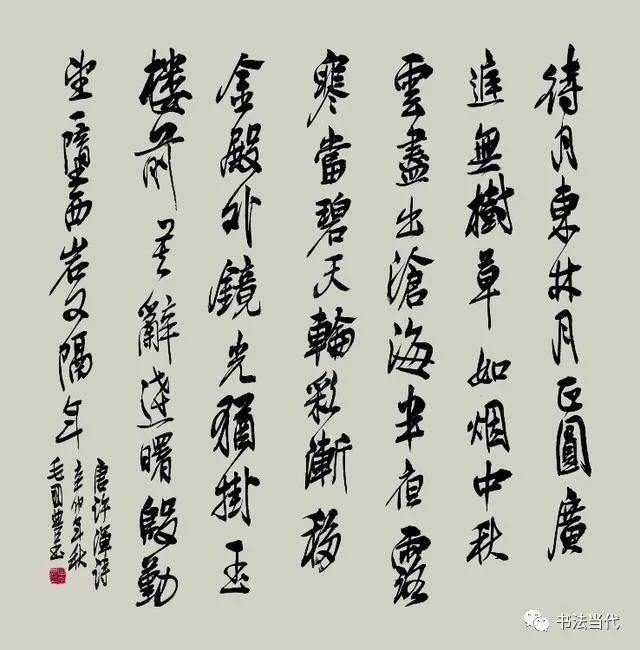 待月東林月正圓廣
庭無樹草如烟中秋
雲盡出滄海半夜露
寒當碧天輪彩漸移
金殿外鏡光猶掛玉
楼前莫辭達曙殷勤
望一墮西岩又隔年
唐许渾诗
辛卯年秋
毛國典書
书法当代